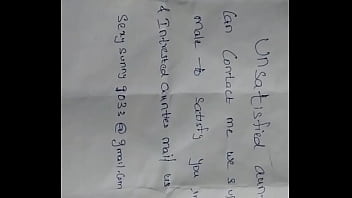 Unsatisfied aun
Can Contact me we s u
male to satisfy you in
& Intrested aunties mail us
Sexy sunny 9033@gmail.com